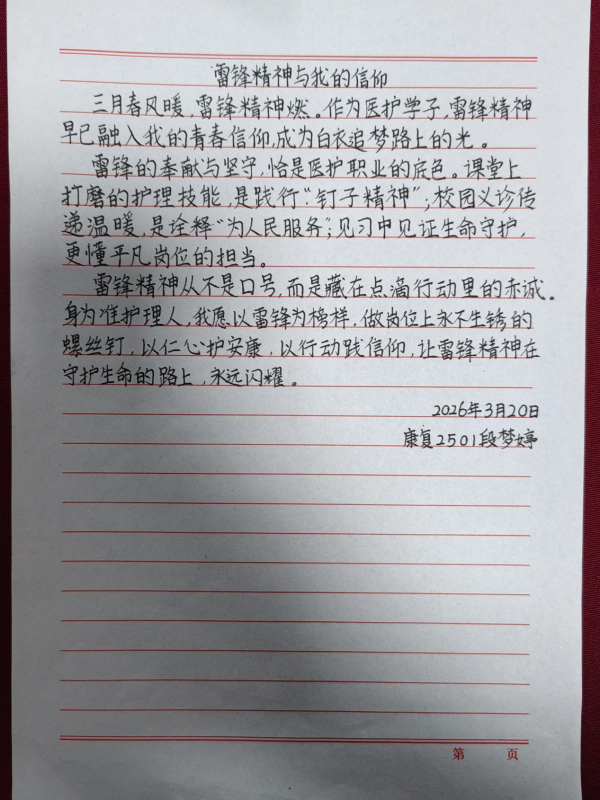 雷锋精神与我的信仰
三月春风暖,雷锋精神燃。作为医护学子,雷锋精神
早已融入我的青春信仰,成为白衣追梦路上的光。
雷锋的奉献与坚守,恰是医护职业的底色。课堂上
打磨的护理技能,是践行“钉子精神”;校园义诊传
递温暖,是诠释“为人民服务”;见习中见证生命守护,
更懂平凡岗位的担当。
雷锋精神从不是口号,而是藏在点滴行动里的赤诚。
身为准护理人,我愿以雷锋为榜样,做岗位上永不生锈的
螺丝钉,以仁心护安康,以行动践信仰,让雷锋精神在
守护生命的路上,永远闪耀。
2026年3月20日
康复2501段梦婷
第 页